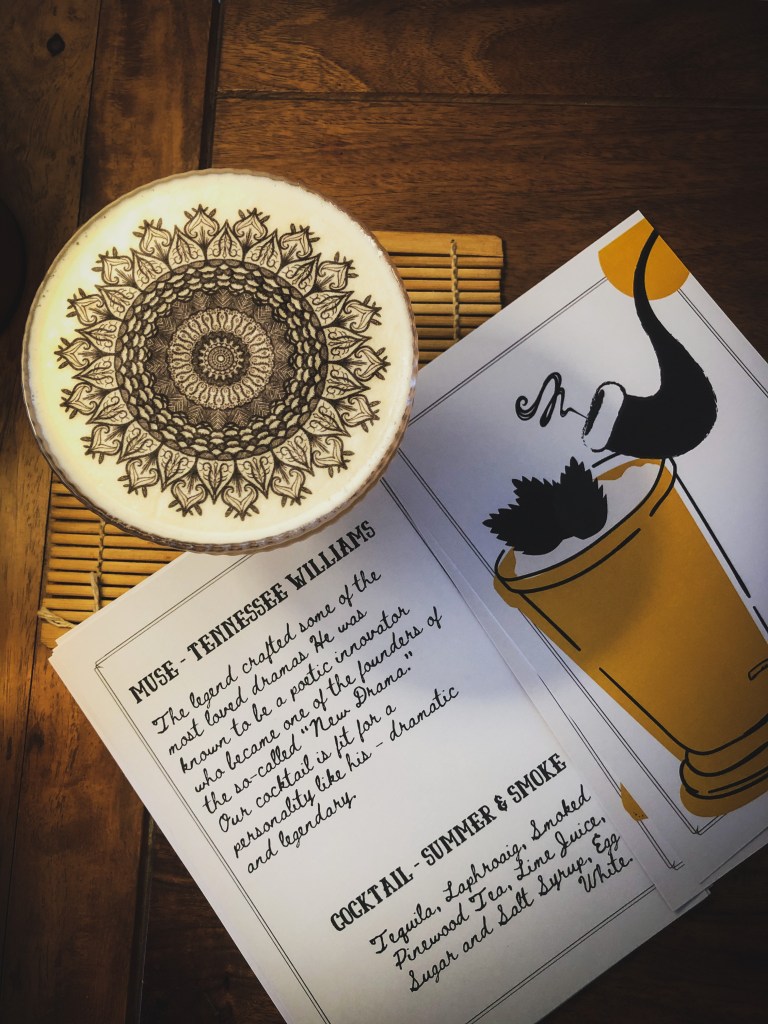 MUSE - TENNESSEE WILLIAMS
The legend crafted some of the
most loved dramas. He was
known to be a poetic innovator
who became one of the founders of
the so-called "New Drama."
Our cocktail is fit for a
personality like his - dramatic
and legendary
COCKTAIL - SUMMER & SMOKE
Tequila, Laphroaig, Smoked
Pinewood Tea, Lime Juice,
Sugar and Salt Syrup, Egg
White.